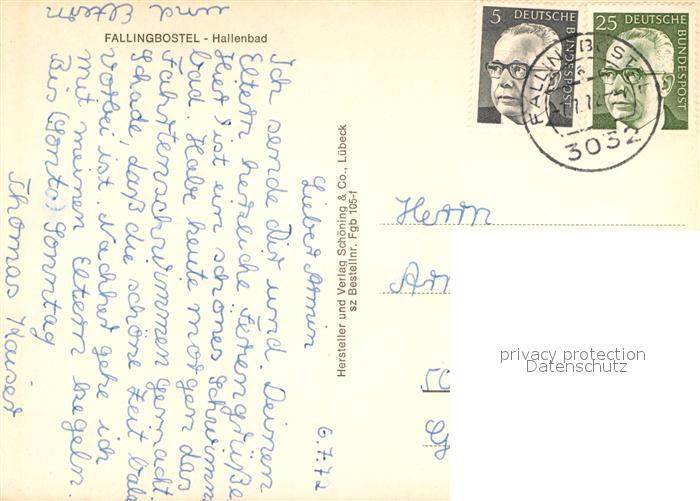 FALLINGBOSTEL - Hallenbad
6.7.72
Lieber Armin
Ich sende Dir und Deinen
Eltern herzliche Feriengrüße
Hier ist ein schönes Schwimm
bad. Habe heute morgen das
Fahrtenschwimmen gemacht.
Schade, daß die schöne Zeit bald
vorbei ist. Nachher gehe ich
mit meinen Eltern kegeln.
Bis Sonntag
Thomas
und Eltern
Hersteller und Verlag Schöning & Co., Lübeck
sz Bestellnr. Fgb 105-f
5 DEUTSCHE BUNDESPOST
25 DEUTSCHE BUNDESPOST
3032
Herrn
privacy protection
Datenschutz